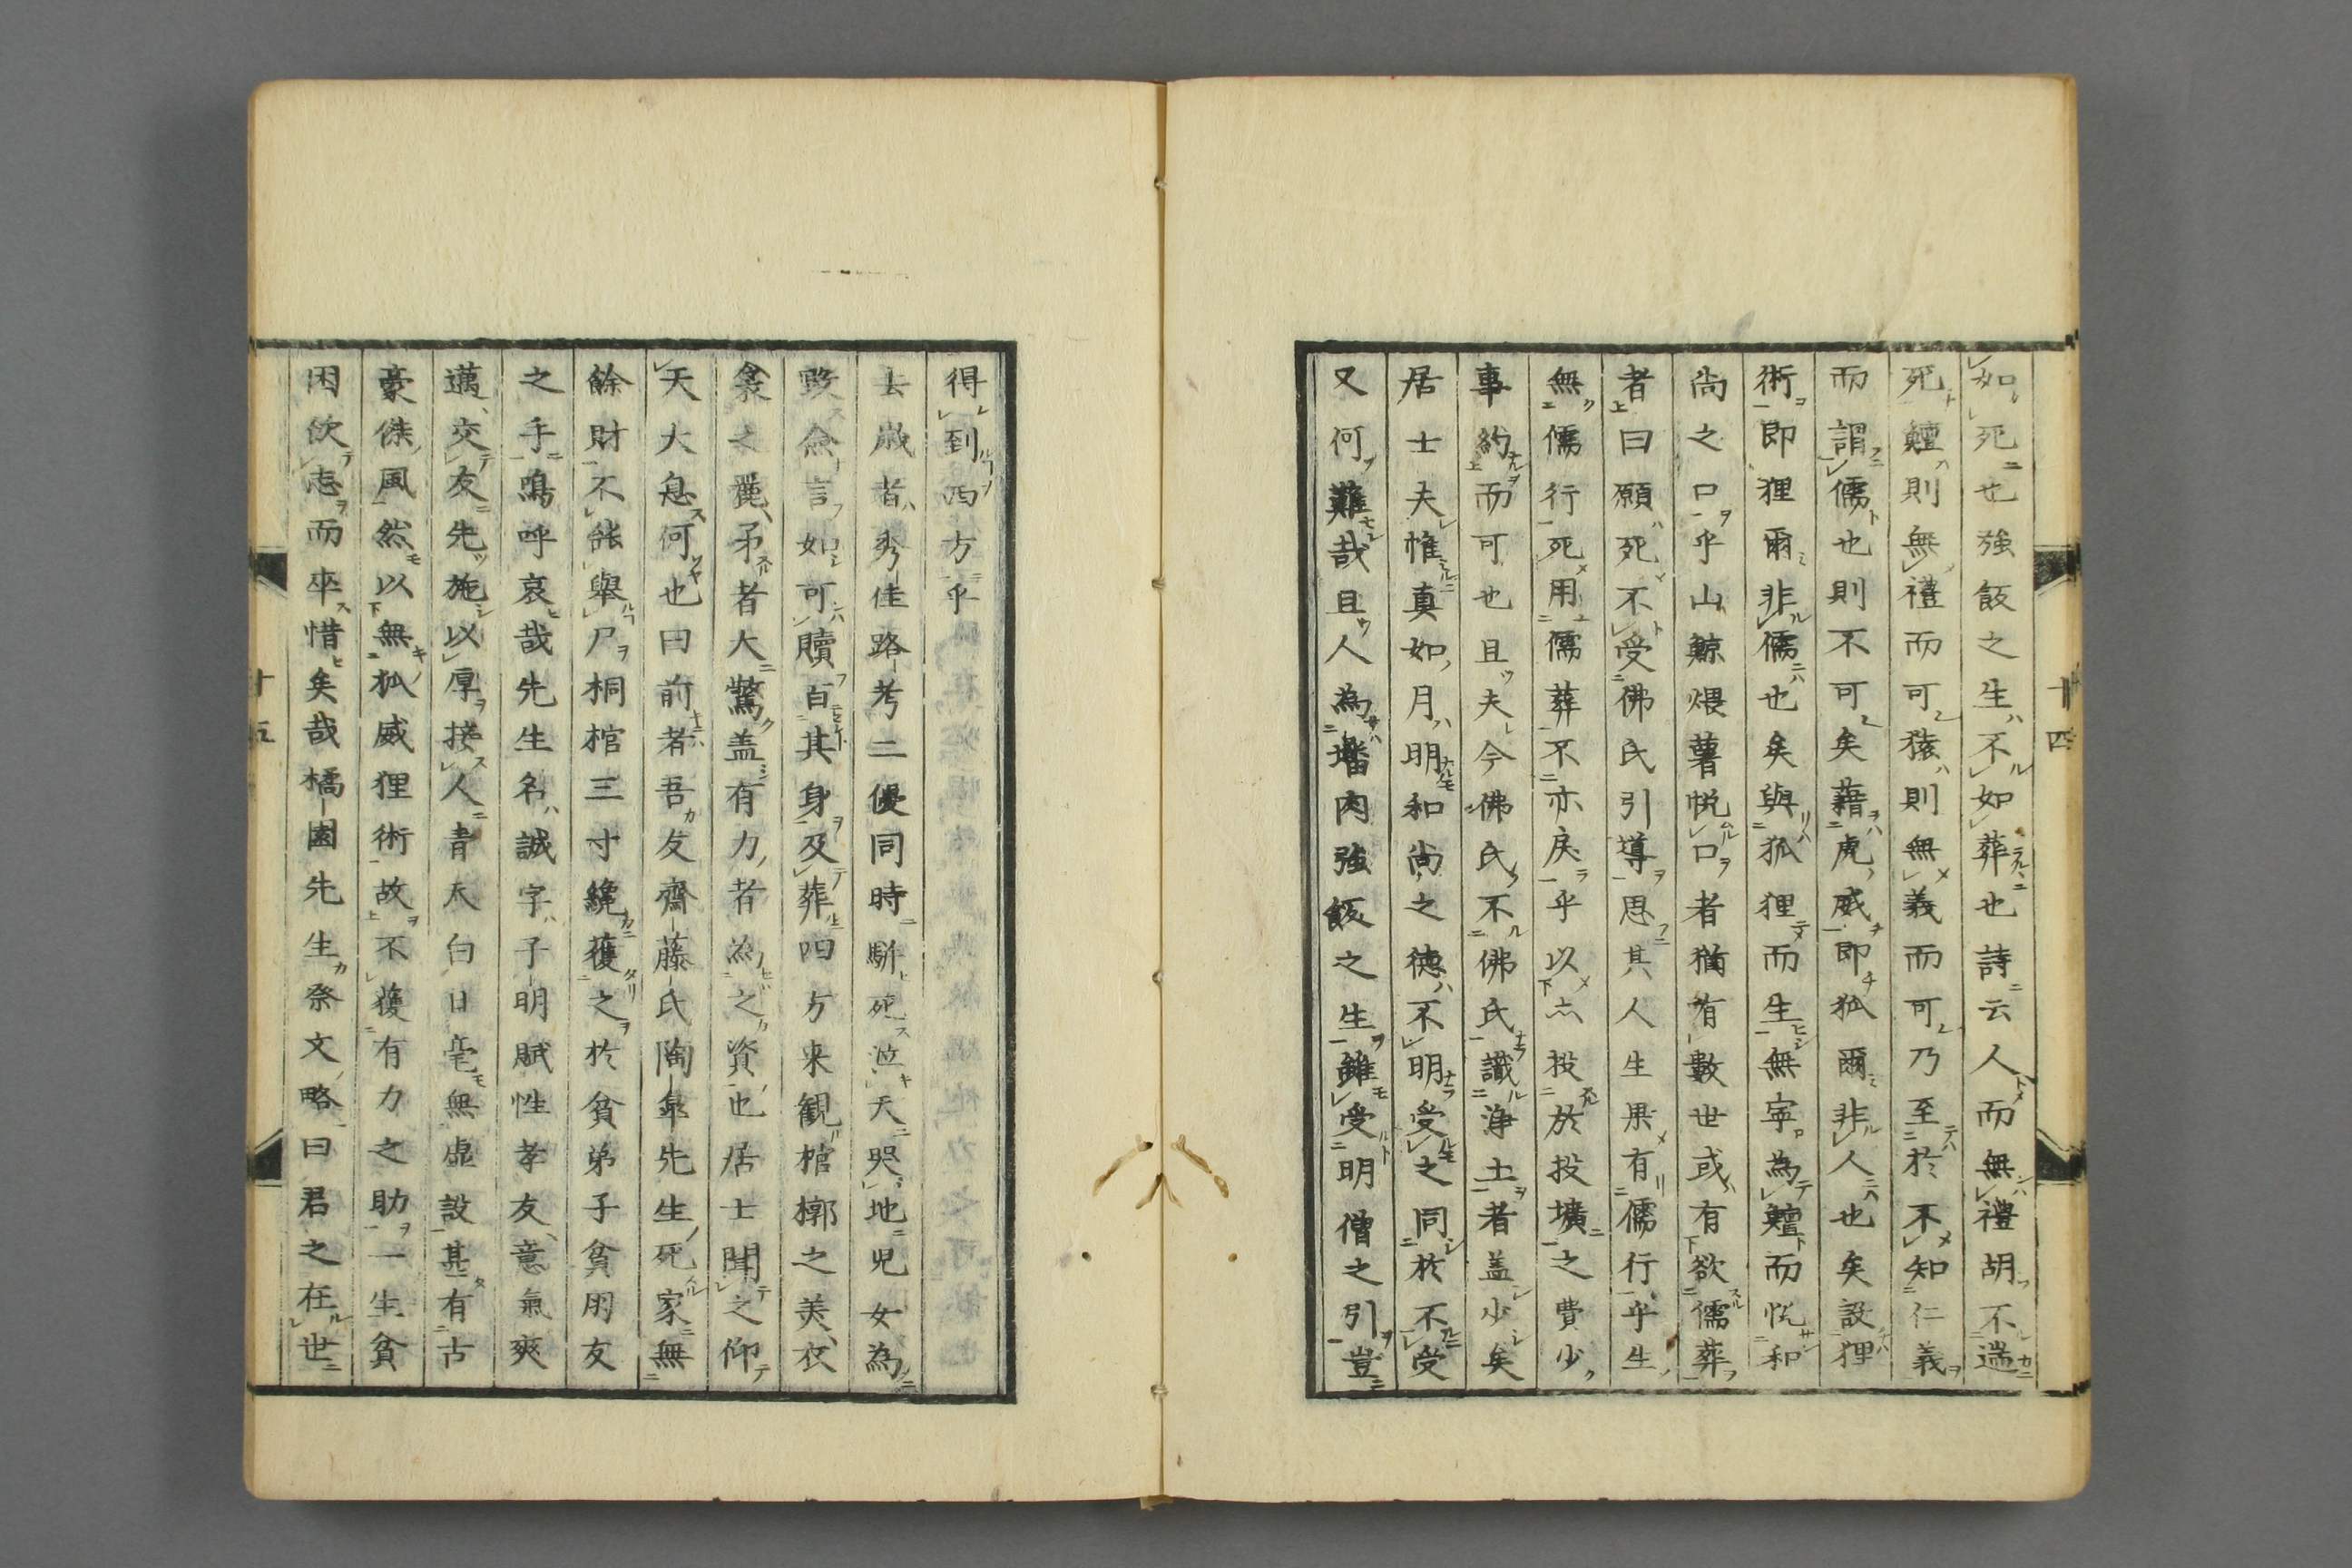 如死也強飯之生不如葬也詩云人而無禮胡不遄
死鱣則無禮而可猿則無義而可乃至於不知仁義
而謂儒也則不可矣藉虎威即狐爾非人也矣設狸
術即狸爾非儒也矣與狐狸而生無寧為鱣而悦和
尚之口乎山鯨煨薯悦口者猶有數世或有欲儒葬
者曰願死不受佛氏引導思其人生果有儒行乎生
無儒行死用儒葬不亦戾乎以亦投於投壙之費少
事約而可也且夫今佛氏不佛氏識淨土者盖少矣
居士夫惟真如月明和尚之德不明受之同於不受
又何難哉且人為墦肉強飯之生雖受明僧之引豈
十四
得到西方乎
去歳者秀佳路考二優同時駢死泣天哭地児女為
致僉言如可贖百其身及葬四方来観棺槨之美衣
衾之麗矛者大驚盖有力者為之資也居士聞之仰
天大息何也曰前者吾友齋藤氏陶皐先生死家無
餘財不能舉尸桐棺三寸纔獲之於貧弟子貧朋友
之手嗚呼哀哉先生名誠字子明賦性孝友意氣爽
邁交友先施以厚接人青天白日毫無虚設甚有古
豪傑風然以無狐威狸術故不獲有力之助一生貧
困飲志而卒惜矣哉橘園先生祭文略曰君之在世
十五